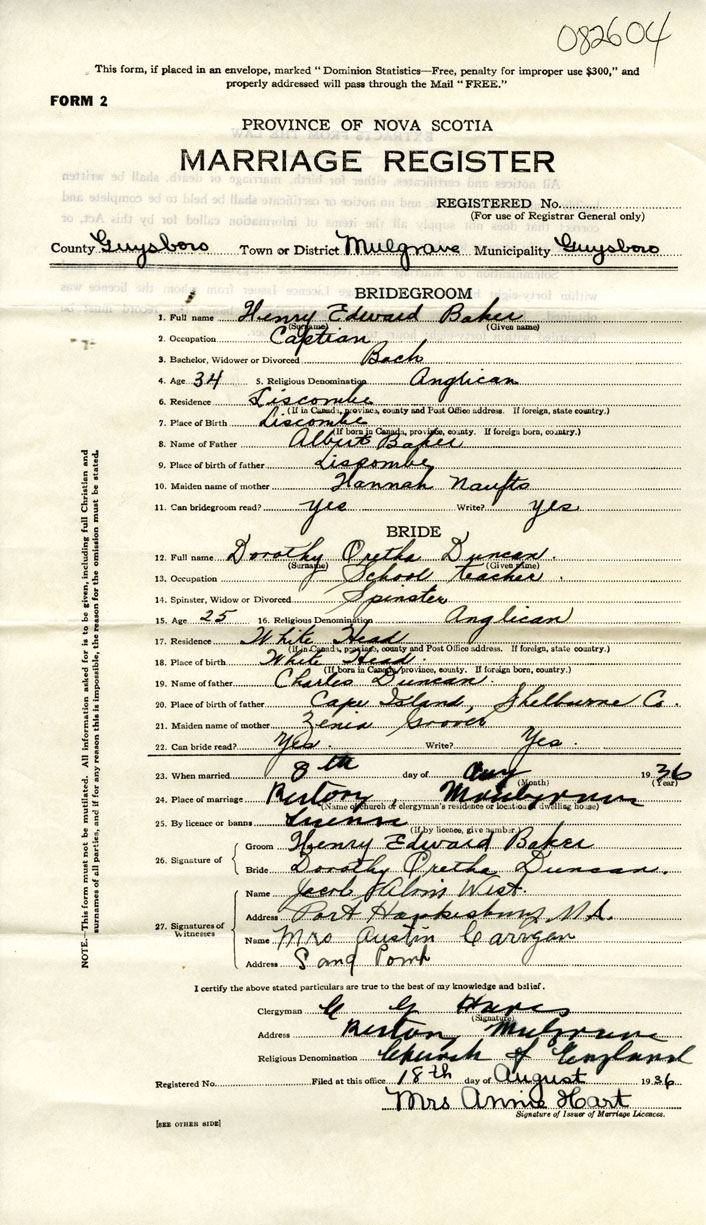 082604
This form, if placed in an envelope, marked "Dominion Statistics—Free, penalty for improper use $300," and
properly addressed will pass through the Mail "FREE."
FORM 2
PROVINCE OF NOVA SCOTIA
MARRIAGE REGISTER
REGISTERED No.
(For use of Registrar General only)
County Guysboro Town or District Mulgrave Municipality Guysboro
BRIDEGROOM
1. Full name Henry Edward Baker
(Surname) (Given name)
2. Occupation Captian
3. Bachelor, Widower or Divorced Bach
4. Age 34 5. Religious Denomination Anglican
6. Residence Liscombe
(If in Canada, province, county and Post Office address. If foreign, state country.)
7. Place of Birth Liscombe
(If born in Canada, province, county. If foreign born, country.)
8. Name of Father Albert Baker
9. Place of birth of father Liscombe
10. Maiden name of mother Hannah Naufts
11. Can bridegroom read? yes Write? yes
BRIDE
12. Full name Dorothy Oretha Duncan.
(Surname) (Given name)
13. Occupation School teacher.
14. Spinster, Widow or Divorced Spinster
15. Age 25 16. Religious Denomination Anglican
17. Residence White Head
(If in Canada, province, county and Post Office address. If foreign, state country.)
18. Place of birth White Head.
(If born in Canada, province, county. If foreign born, country.)
19. Name of father Charles Duncan.
20. Place of birth of father Cape Island, Shelburne Co.
21. Maiden name of mother Zenia Grover
22. Can bride read? Yes. Write? Yes.
23. When married 8th day of Aug 1936
(Month) (Year)
24. Place of marriage Rectory, Mulgrave
(Name of church or clergyman's residence or location of dwelling house)
25. By licence or banns License
(If by licence, give number)
26. Signature of Groom Henry Edward Baker
Bride Dorothy Oretha Duncan.
27. Signatures of Witnesses
Name Jacob West.
Address Port Hawkesbury, N.S.
Name Mrs Austin Carrigan
Address Sand Point
I certify the above stated particulars are true to the best of my knowledge and belief.
Clergyman
(Signature)
Address Rectory Mulgrave
Religious Denomination Church of England
Registered No. Filed at this office 18th day of August 1936
Mrs Annie Hart
Signature of Issuer of Marriage Licences.
[SEE OTHER SIDE]
NOTE.—This form must not be mutilated. All information asked for is to be given, including full Christian and
surnames of all parties, and if for any reason this is impossible, the reason for the omission must be stated.